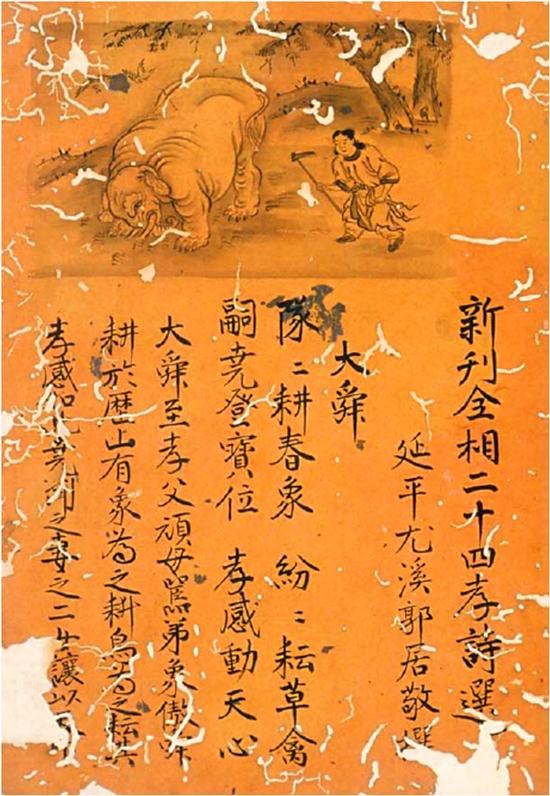 新刊全相二十四孝詩選
延平尤溪郭居敬撰
大舜
隊〻耕春象 紛〻耘草禽
嗣堯登寶位 孝感動天心
大舜至孝父頑母嚚弟象傲
耕於歴山有象為之耕鳥為之耘其
孝感如此堯 之妻之二 讓以